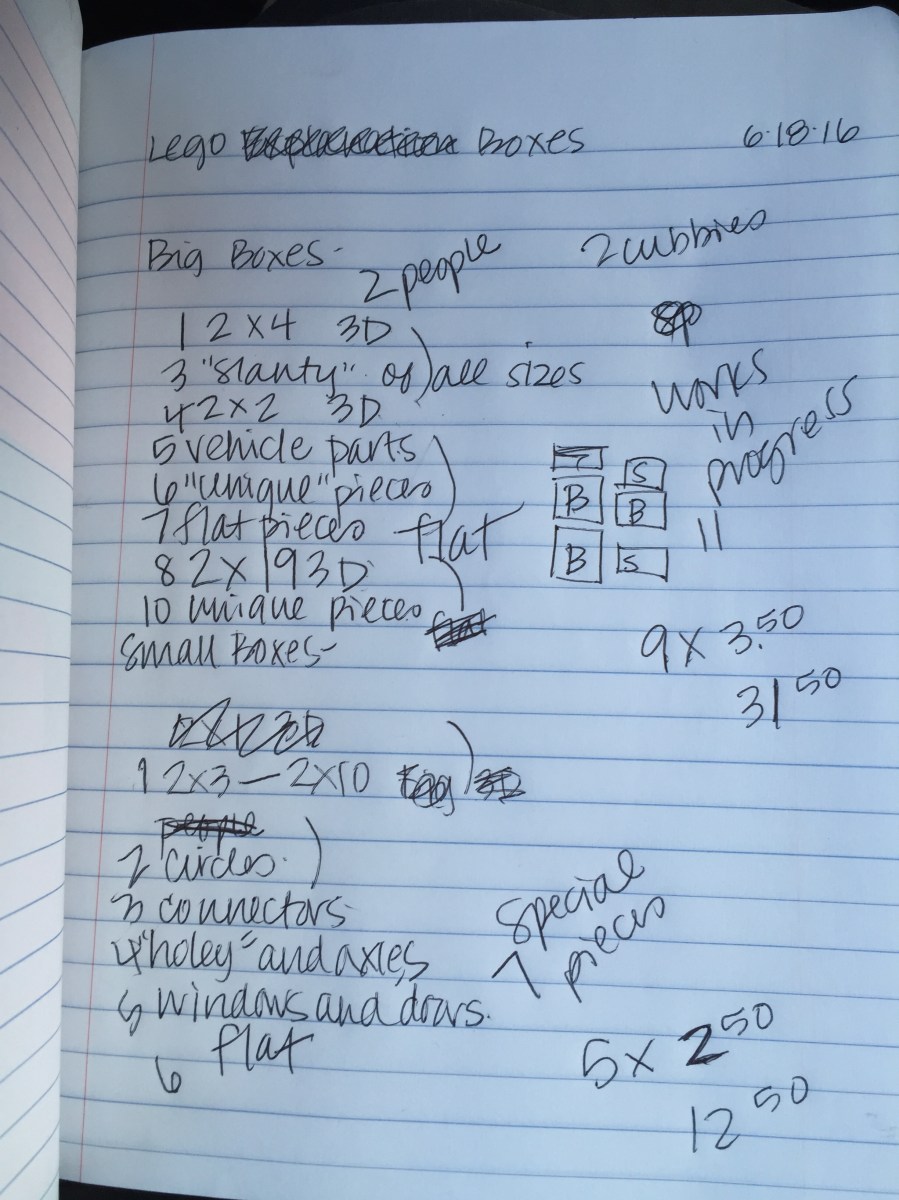 Lego Boxes 6·18·16
Big Boxes- 2 people 2 cubbies
1 2x4 3D
3 "slanty" of all sizes
4 2x2 3D
works
in
progress
11
5 vehicle parts
6 "unique" pieces
7 flat pieces flat
8 2x1 9 3D
10 unique pieces
S
B B
B S
small Boxes-
9 x 3.50
31 50
1 2x3 — 2x10
2 circles
3 connectors
4 "holey" and axles
5 windows and doors.
6 flat
special
7 pieces
5 x 2 50
12 50